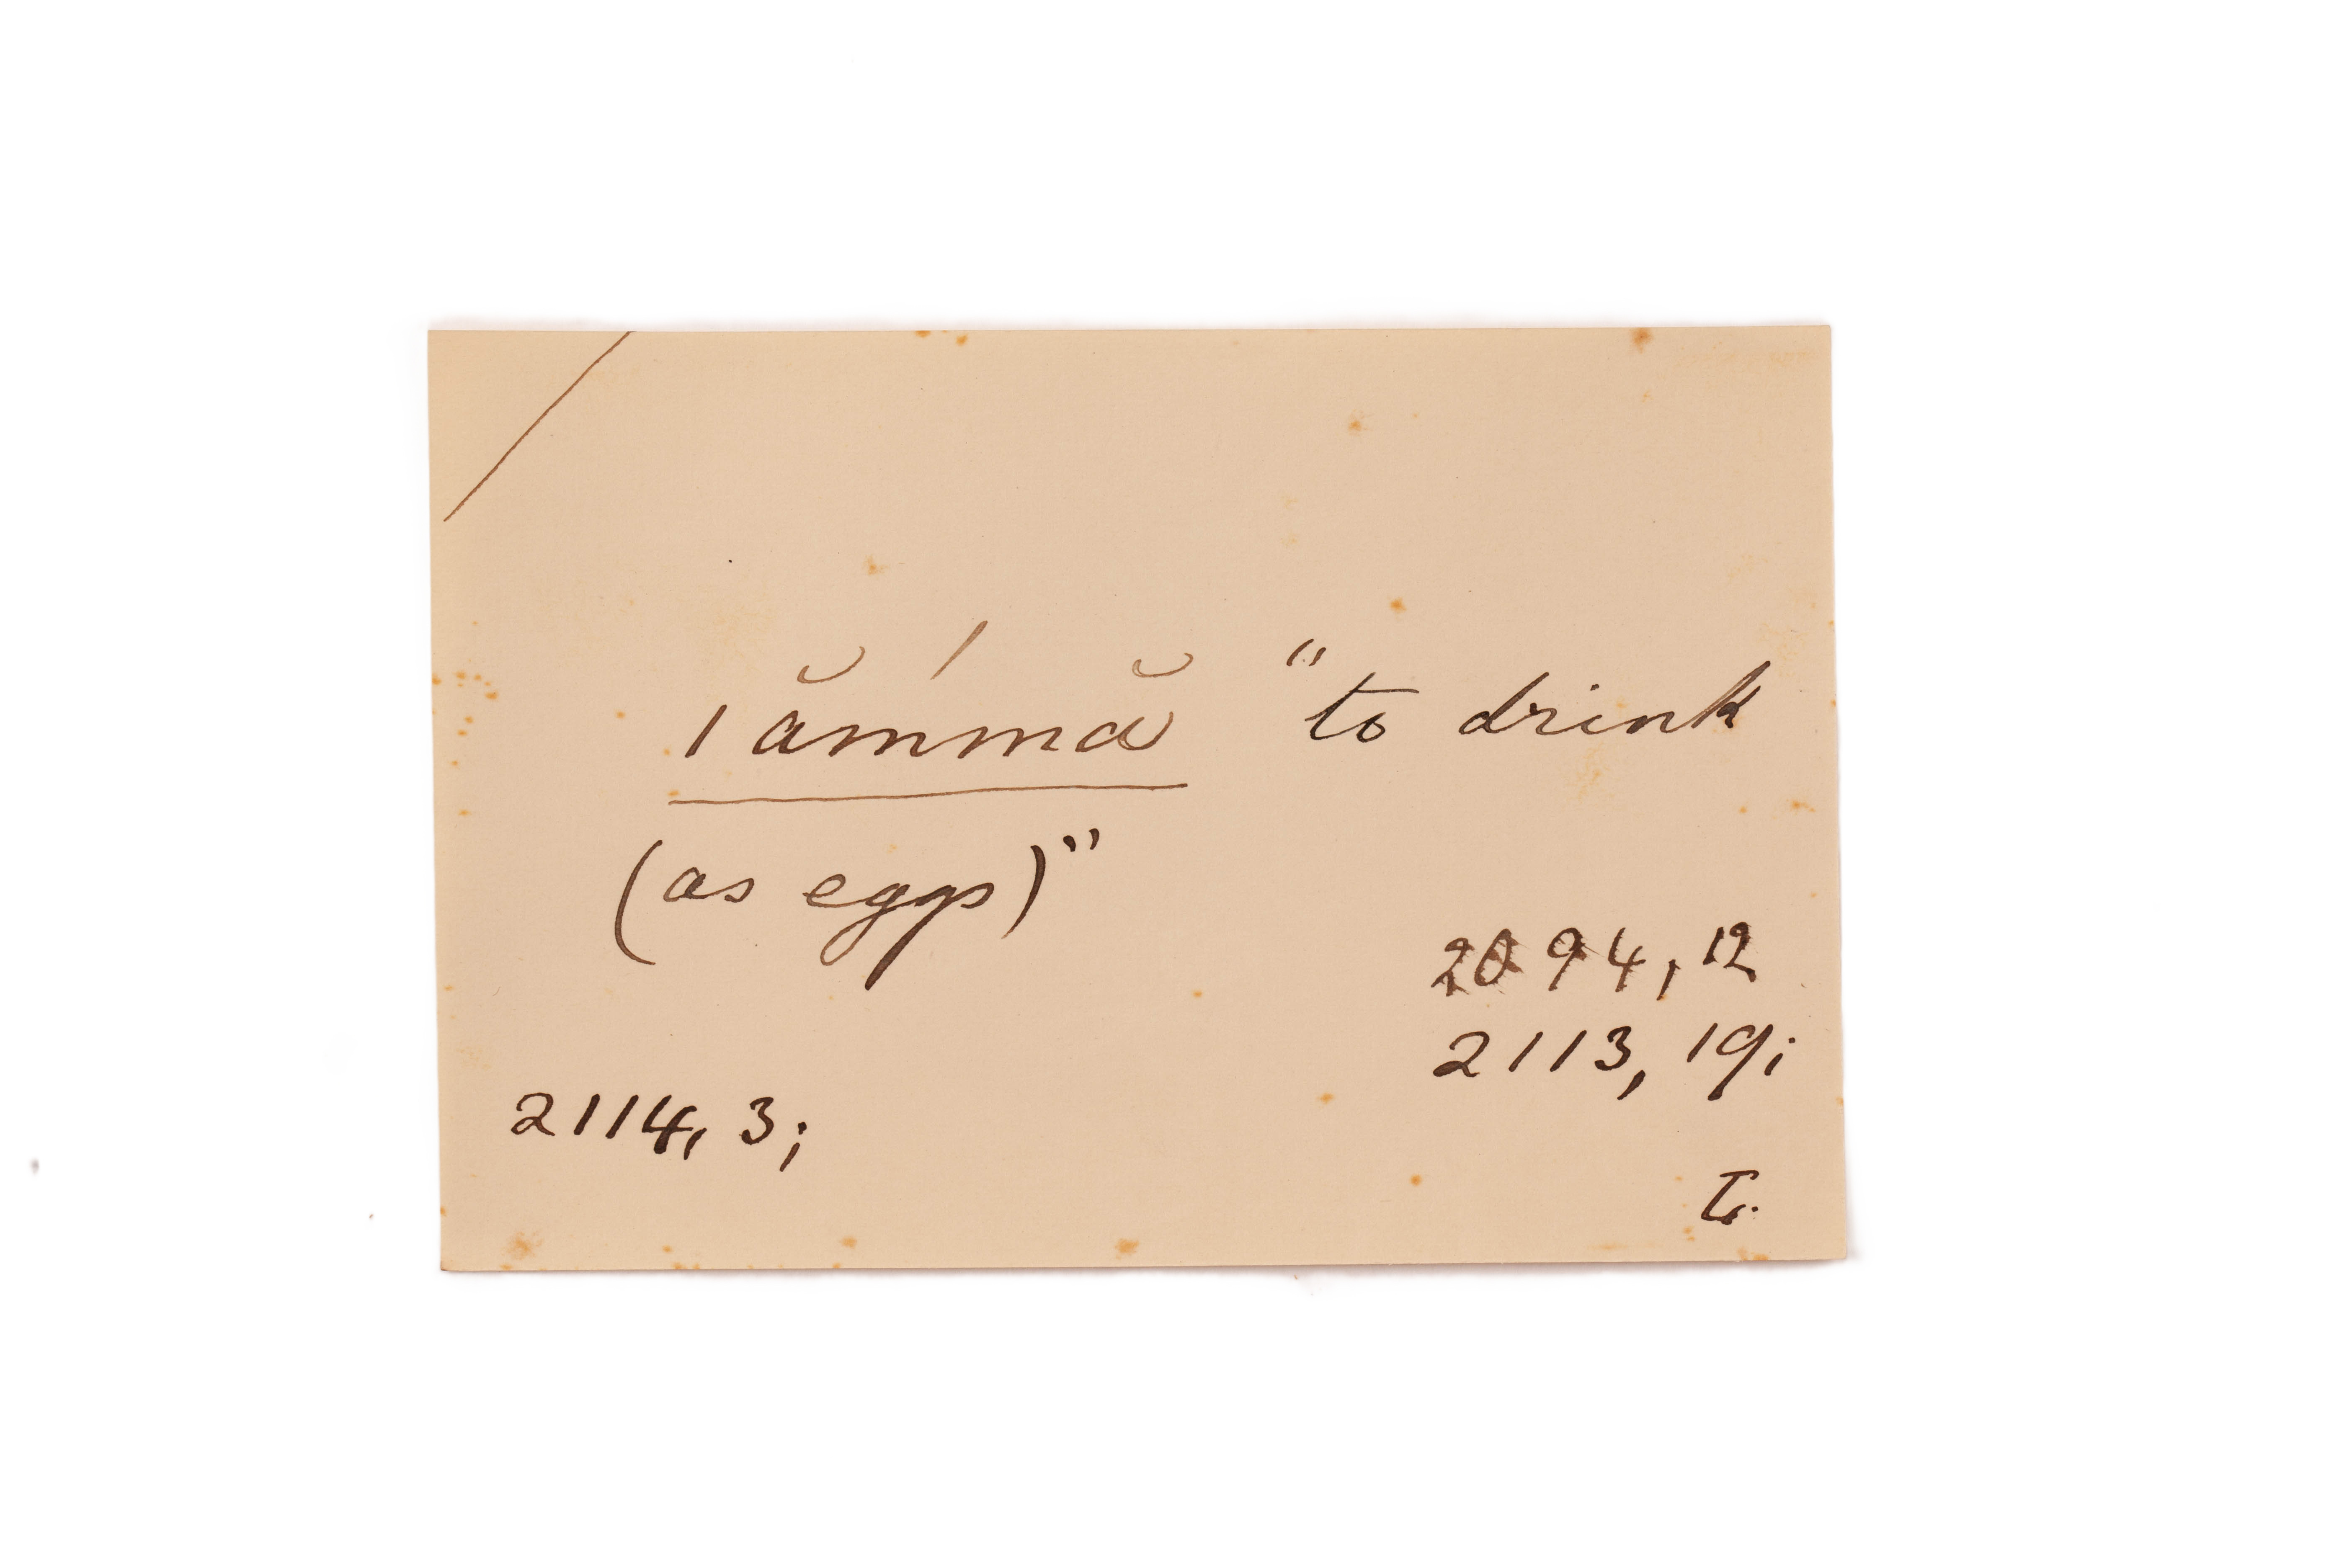 ǀămˊmă "to drink
(as eggs)"
2094, 12
2113, 19;
2114, 3;